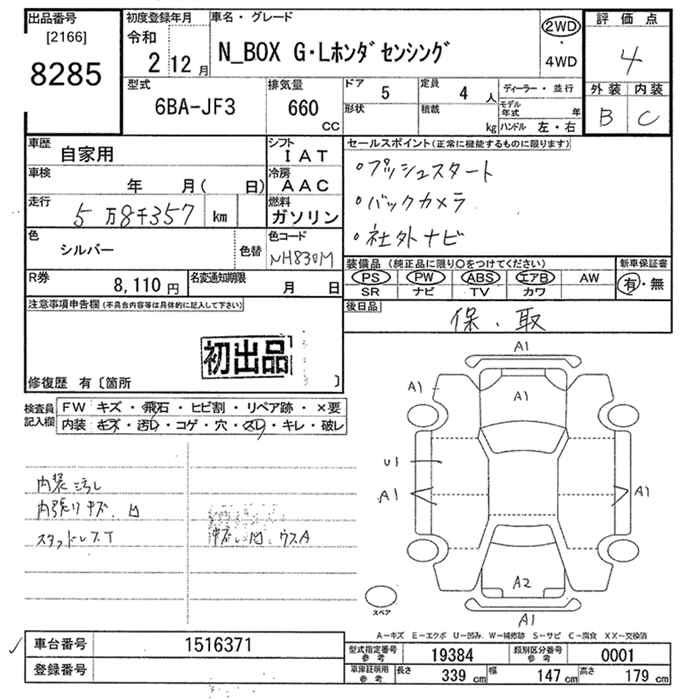 出品番号
[2166]
8285
初度登録年月
令和
2 12 月
車名・グレード
N_BOX G・Lホンダセンシング
2WD
・
4WD
評価点
4
外装 内装
B C
型式
6BA-JF3
排気量
660
CC
ドア 5
形状
定員 4 人
積載 kg
ディーラー・並行
モデル年式 年
ハンドル 左・右
車歴
自家用
シフト
IAT
車検
年 月( 日)
冷房
AAC
走行
5万8千357 km
燃料
ガソリン
色
シルバー
色替
色コード
NH830M
R券
8,110 円
名変通知期限
月 日
セールスポイント(正常に機能するものに限ります)
・プッシュスタート
・バックカメラ
・社外ナビ
装備品(純正品に限り○をつけてください)
PS PW ABS エアB AW
SR ナビ TV カワ
新車保証書
有・無
後日品
保、取
注意事項申告欄(不具合内容等は具体的に記入して下さい)
初出品
修復歴 有〔箇所 〕
検査員
記入欄
FW キズ・飛石・ヒビ割・リペア跡・×要
内装 キズ・汚レ・コゲ・穴・スレ・キレ・破レ
内装汚れ
内張りキズ、凹
スタッドレスT
ウスA
A1
A1
A1
U1
A1
A1
A2
A1
スペア
A－キズ E－エクボ U－凹み W－補修跡 S－サビ C－腐食 XX－交換済
車台番号
1516371
登録番号
型式指定番号
参考
19384
類別区分番号
参考
0001
車庫証明用
参考
長さ 339 cm
幅 147 cm
高さ 179 cm